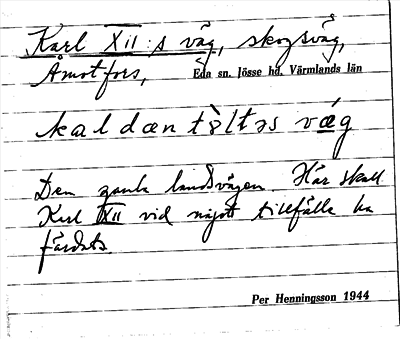 Karl XII:s väg, skogsväg,
Åmotfors, Eda sn. Jösse hd. Värmlands län
kaldæn tòltəs væg
Den gamla landsvägen. Här skall
Karl XII vid något tillfälle ha
färdats.
Per Henningsson 1944